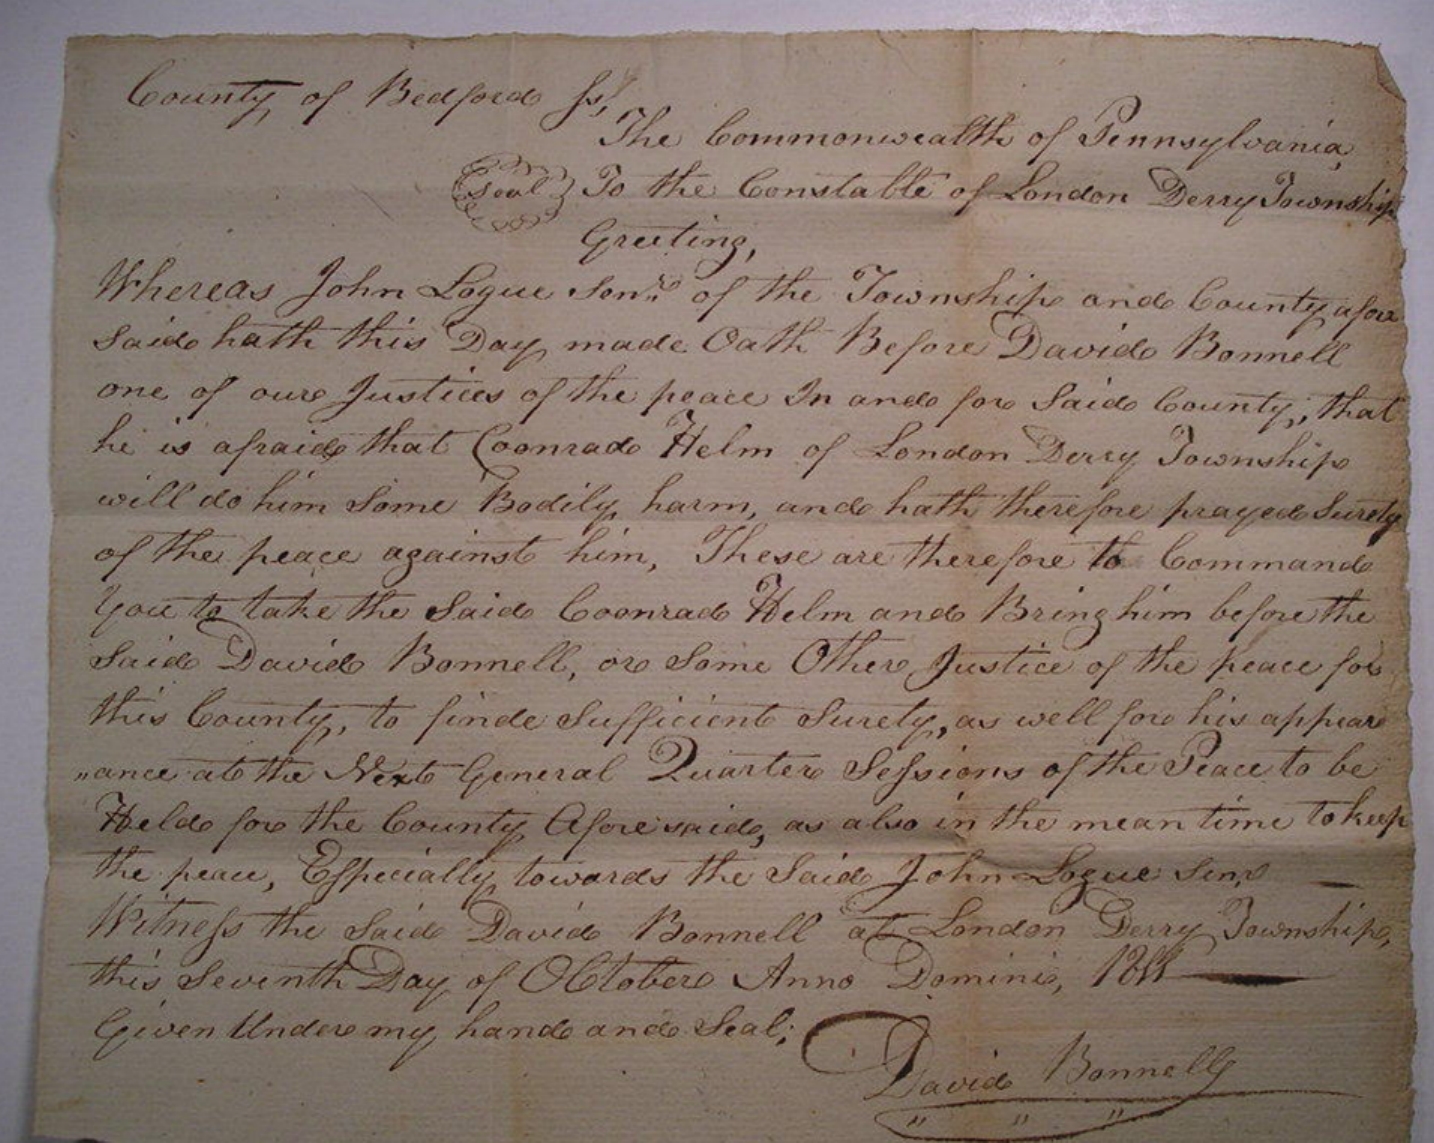 County of Bedford ss,
The Commonwealth of Pennsylvania,
Seal To the Constable of London Derry Township
Greeting,
Whereas John Logue Senr. of the Township and County afore
said hath this Day made Oath Before David Bonnell
one of our Justices of the peace In and for Said County, that
he is afraid that Coonrad Helm of London Derry Township
will do him Some Bodily harm, and hath therefore prayed Surety
of the peace against him, These are therefore to Command
You to take the Said Coonrad Helm and Bring him before the
Said David Bonnell, or Some Other Justice of the peace for
this County, to finde Sufficient Surety, as well for his appear
„ance at the Next General Quarter Sessions of the Peace to be
Held for the County Aforesaid, as also in the mean time to keep
the peace, Especially towards the Said John Logue Senr
Witness the Said David Bonnell at London Derry Township,
this Seventh Day of October Anno Domini, 1811
Given Under my hand and Seal;
David Bonnell